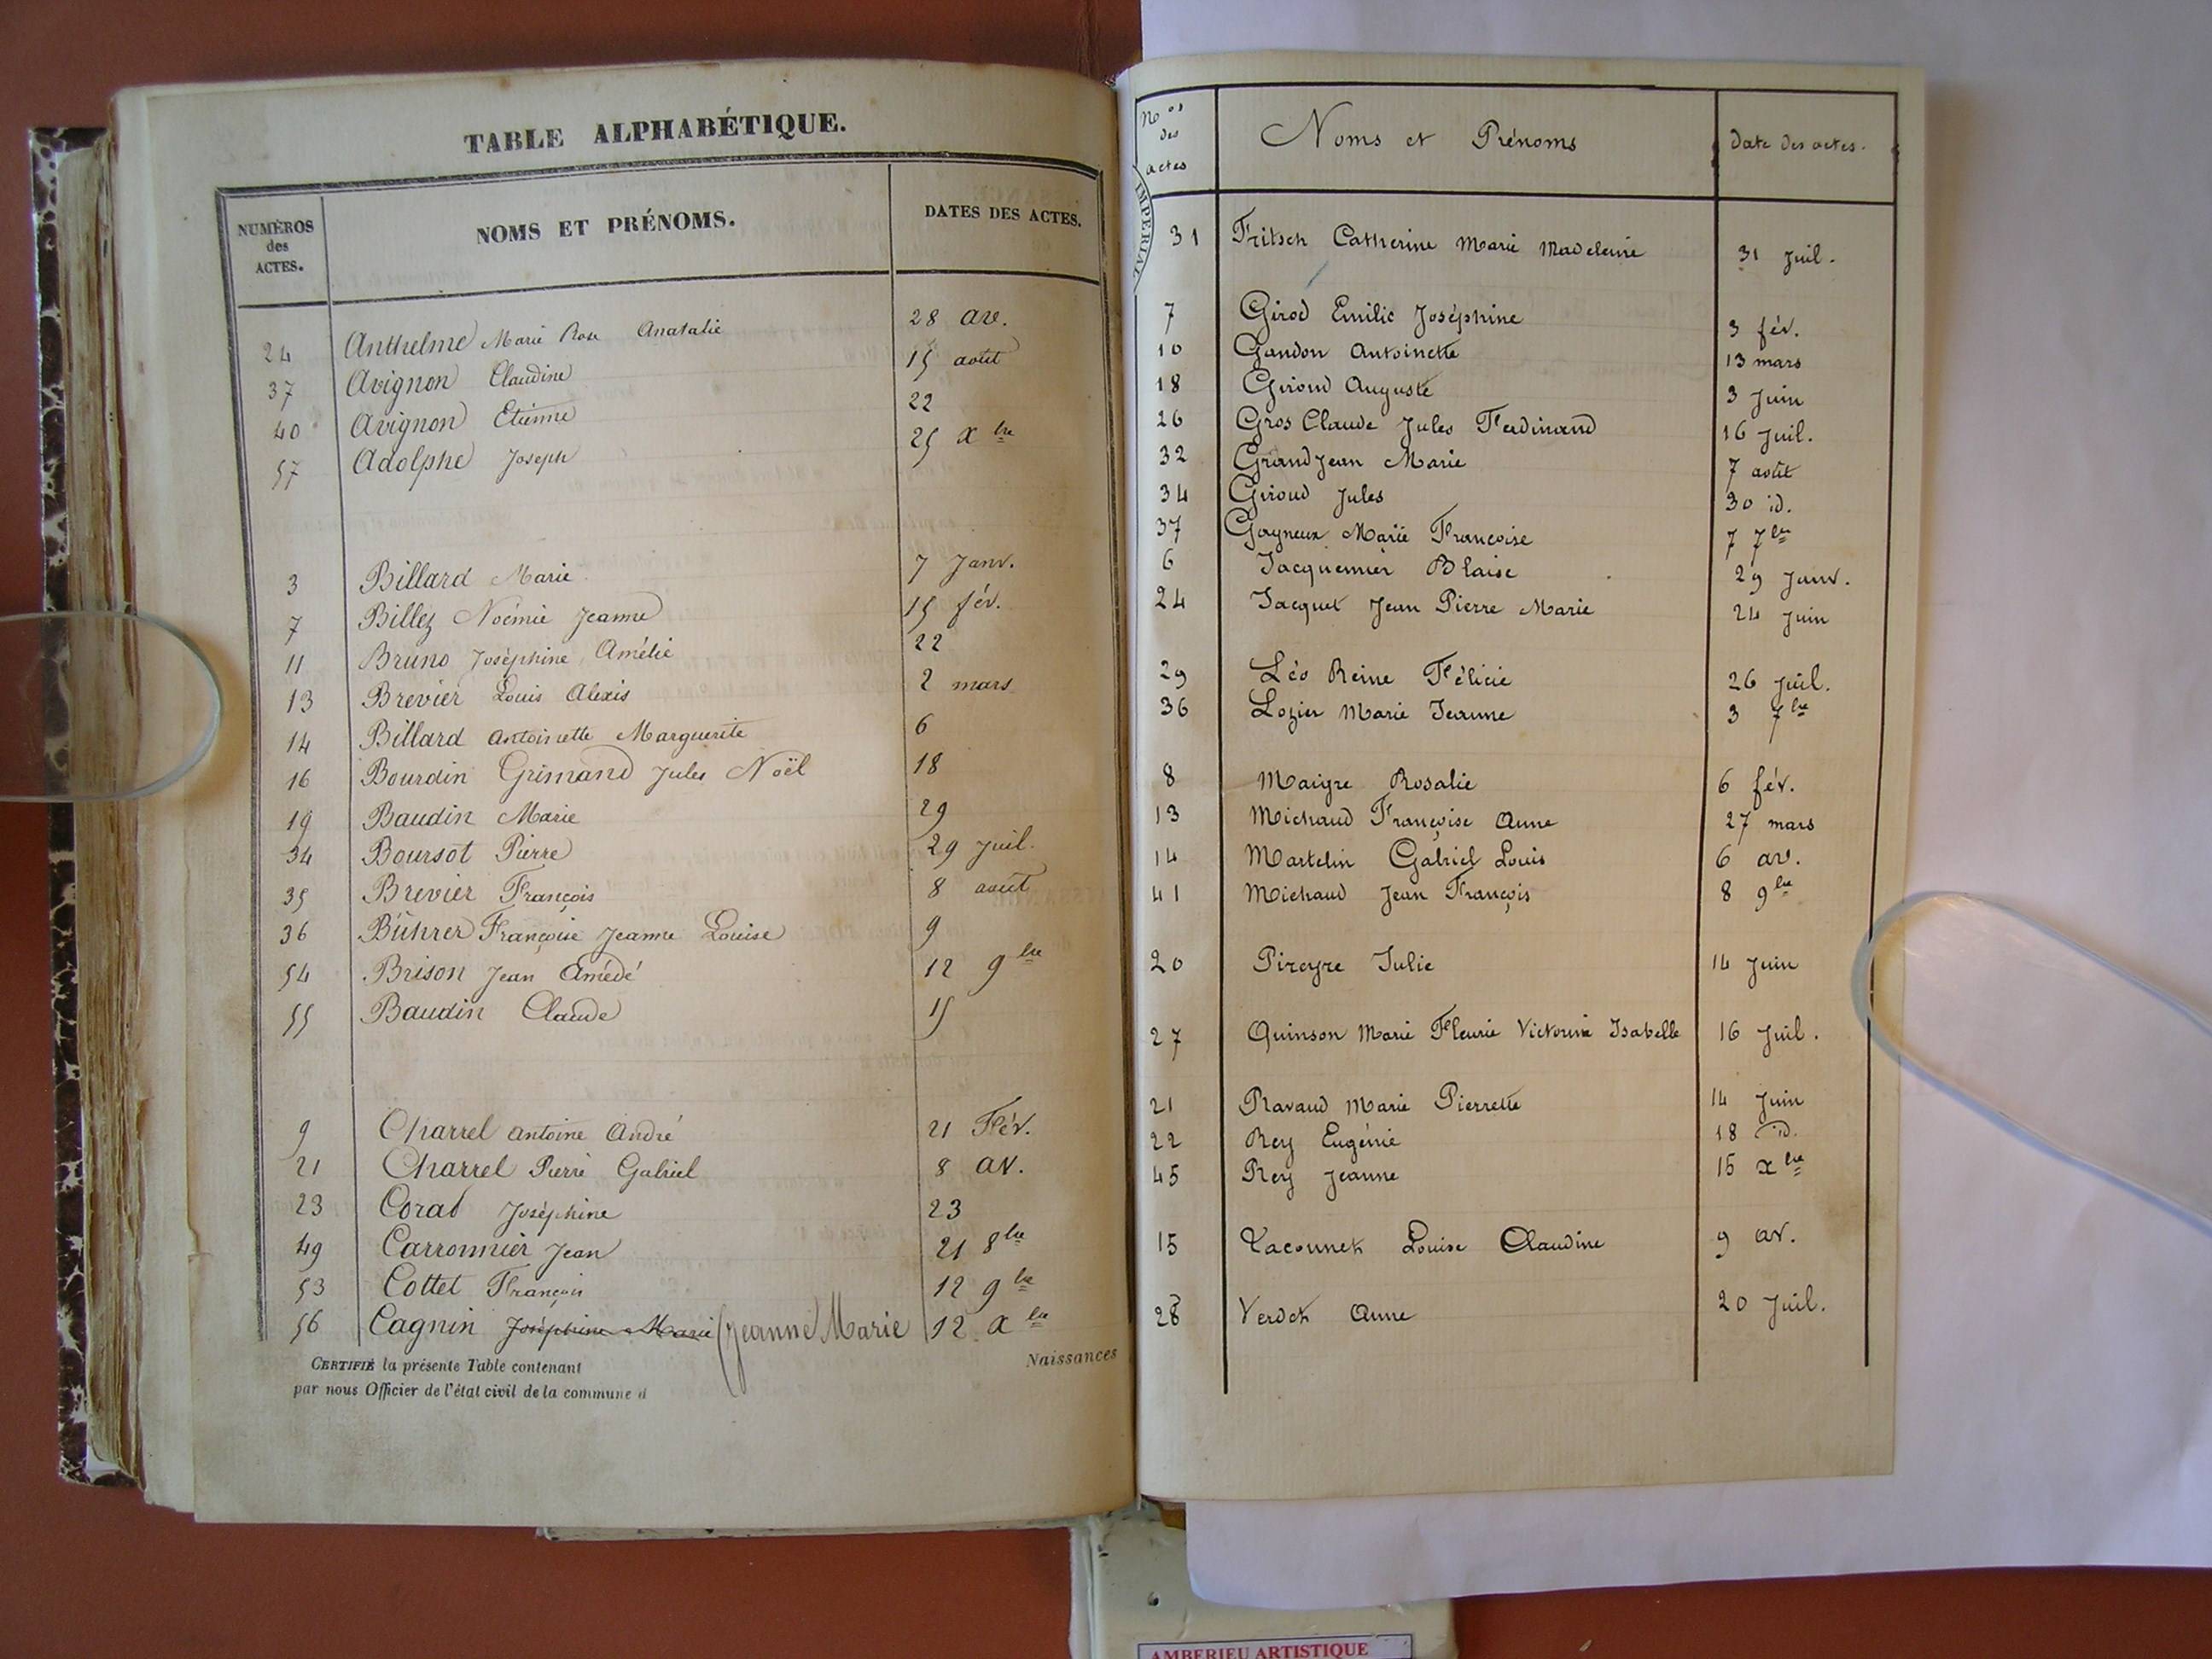 TABLE ALPHABÉTIQUE.
NUMÉROS des ACTES. NOMS ET PRÉNOMS. DATES DES ACTES.
24 Anthelme Marie Rose Anatalie 28 av.
37 Avignon Claudine 15 août
40 Avignon Etienne 22
57 Adolphe Joseph 25 Xbre
3 Billard Marie 7 Janv.
7 Billez Noémie Jeanne 15 fév.
11 Bruno Joséphine Amélie 22
13 Brevier Louis Alexis 2 mars
14 Billard Antoinette Marguerite 6
16 Bourdin Grimand Jules Noël 18
19 Baudin Marie 29
34 Boursot Pierre 29 Juil.
35 Brevier François 8 août
36 Bührer Françoise Jeanne Louise 9
54 Brison Jean Amédé 12 9bre
55 Baudin Claude 15
9 Charrel Antoine André 21 Fév.
21 Charrel Pierre Gabriel 8 av.
23 Corat Joséphine 23
49 Carronnier Jean 21 8bre
53 Cottet François 12 9bre
56 Cagnin Joséphine Marie (Jeanne Marie 12 Xbre
CERTIFIÉ la présente Table contenant
Naissances
par nous Officier de l'état civil de la commune d
Nos des actes Noms et Prénoms Date des actes.
IMPÉRIAL
31 Fritsch Catherine Marie Madeleine 31 Juil.
7 Girod Emilie Joséphine 3 fév.
10 Gandon Antoinette 13 mars
18 Giroud Auguste 3 Juin
26 Gros Claude Jules Ferdinand 16 Juil.
32 GrandJean Marie 7 août
34 Giroud Jules 30 id.
37 Gagneux Marie Françoise 7 7bre
6 Jacquemier Blaise 29 Janv.
24 Jacquet Jean Pierre Marie 24 Juin
29 Léo Reine Félicie 26 Juil.
36 Lozier Marie Jeanne 3 7bre
8 Maigre Rosalie 6 fév.
13 Michaud Françoise Anne 27 mars
14 Martelin Gabriel Louis 6 av.
41 Michaud Jean François 8 9bre
20 Pireyre Julie 14 Juin
27 Quinson Marie Fleurie Victorine Isabelle 16 Juil.
21 Ravaud Marie Pierrette 14 Juin
22 Rey Eugénie 18 id.
45 Rey Jeanne 15 Xbre
15 Vaconnet Louise Claudine 9 av.
28 Verdet Anne 20 Juil.
AMBERIEU ARTISTIQUE